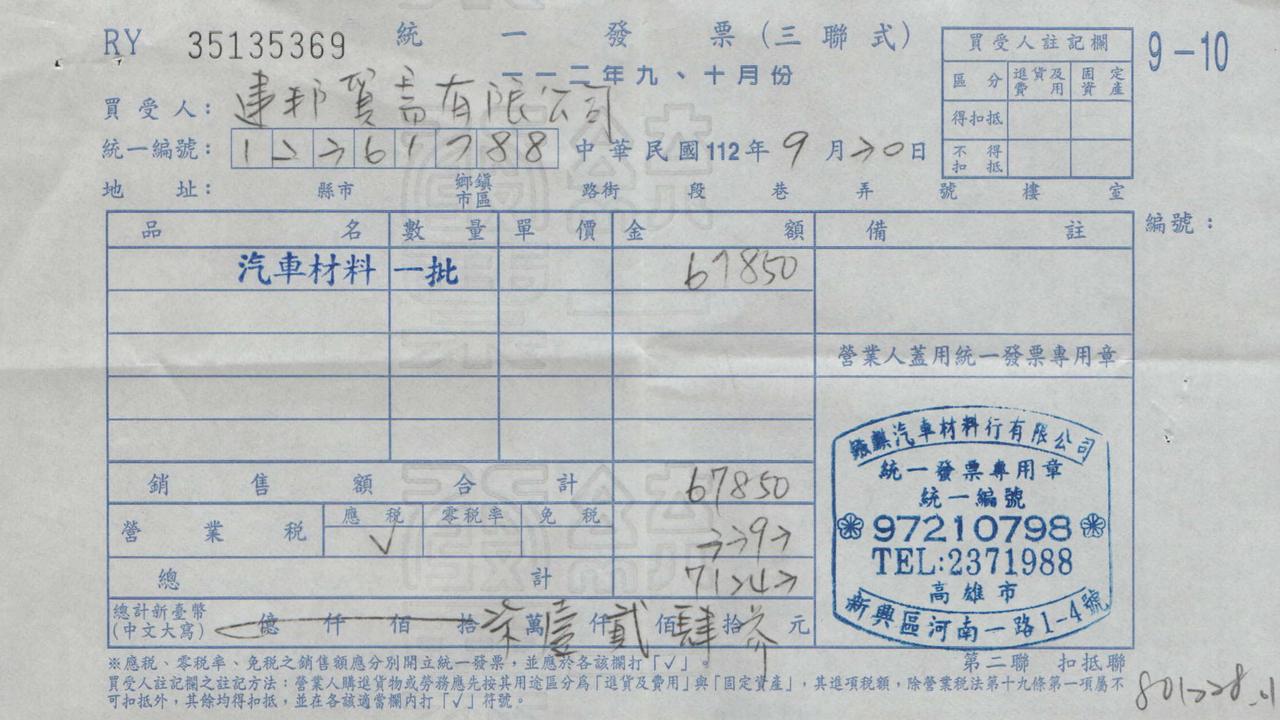 RY 35135369 統一發票(三聯式) 9-10
一一二年九、十月份
買受人註記欄
區分 進貨及費用 固定資產
得扣抵
不得扣抵
買受人: 建邦貿易有限公司
統一編號: 中華民國112年9月20日
地址: 縣市 鄉鎮市區 路街 段 巷 弄 號 樓 室
品名 數量 單價 金額 備註 編號:
汽車材料 一批 67850
營業人蓋用統一發票專用章
銷售額合計 67850
營業稅 應稅 零稅率 免稅
✓ 3393
總計 71243
總計新臺幣(中文大寫) 億 仟 佰 拾柒萬壹仟貳佰肆拾參元
汽車材料行有限公司
統一發票專用章
統一編號
97210798
TEL:2371988
高雄市
新興區河南一路1-4號
※應稅、零稅率、免稅之銷售額應分別開立統一發票,並應於各該欄打「✓」。
第二聯 扣抵聯
買受人註記欄之註記方法:營業人購進貨物或勞務應先按其用途區分為「進貨及費用」與「固定資產」,其進項稅額,除營業稅法第十九條第一項屬不
可扣抵外,其餘均得扣抵,並在各該適當欄內打「✓」符號。